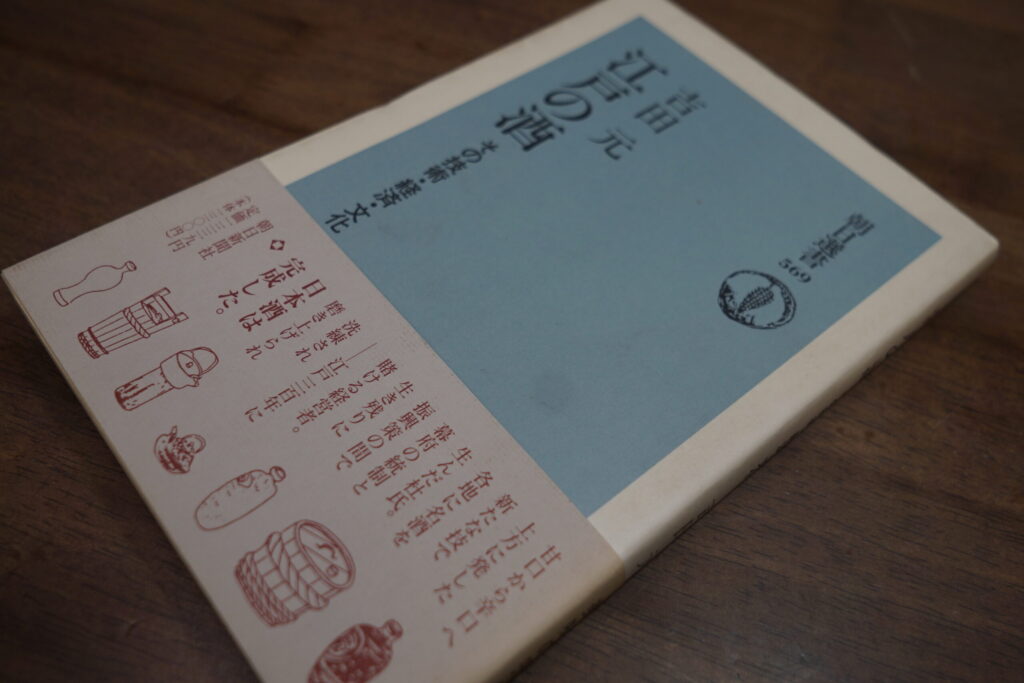 吉田 元
江戸の酒
その技術・経済・文化
朝日選書
569
甘口から辛口へ
上方に発した
新たな技で
各地に名酒を
生んだ杜氏。
幕府の統制と
振興策の間で
生き残りに
賭ける経営者。
──江戸三百年に
洗練され
磨き上げられ
日本酒は
完成した。
朝日新聞社
定価一三三九円
(本体一三〇〇円)